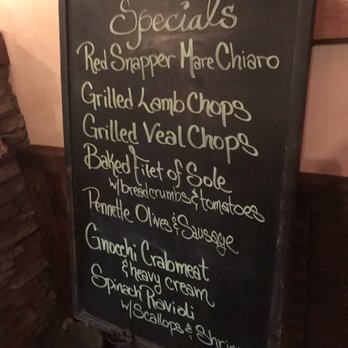 Specials
Red Snapper Mare Chiaro
Grilled Lamb Chops
Grilled Veal Chops
Baked Filet of Sole
w/breadcrumbs & tomatoes
Pennette Olives & Sausage
Gnocchi Crabmeat
& heavy cream
Spinach Ravioli
w/ Scallops &